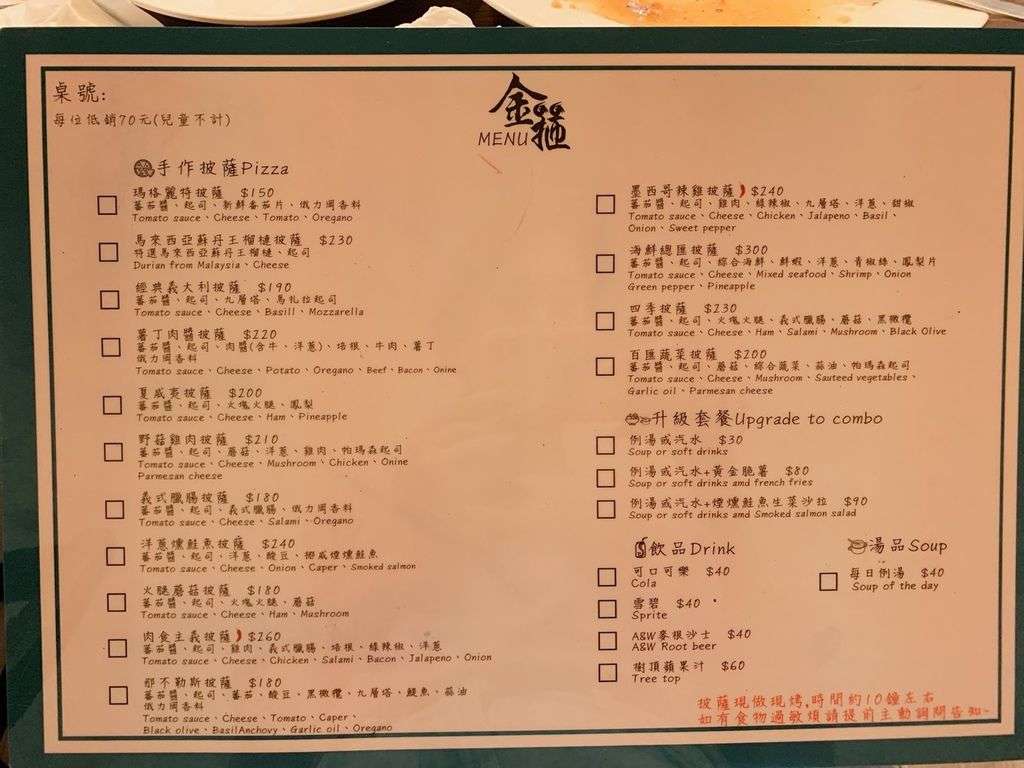 桌號:
每位低銷70元(兒童不計)
金箍
MENU
手作披薩Pizza
瑪格麗特披薩 $150
蕃茄醬、起司、新鮮蕃茄片、俄力岡香料
Tomato sauce、Cheese、Tomato、Oregano
馬來西亞蘇丹王榴槤披薩 $230
特選馬來西亞蘇丹王榴槤、起司
Durian from Malaysia、Cheese
經典義大利披薩 $190
蕃茄醬、起司、九層塔、馬扎拉起司
Tomato sauce、Cheese、Basill、Mozzarella
薯丁肉醬披薩 $220
蕃茄醬、起司、肉醬(含牛、洋蔥)、培根、牛肉、薯丁
俄力岡香料
Tomato sauce、Cheese、Potato、Oregano、Beef、Bacon、Onine
夏威夷披薩 $200
蕃茄醬、起司、火塊火腿、鳳梨
Tomato sauce、Cheese、Ham、Pineapple
野菇雞肉披薩 $210
蕃茄醬、起司、蘑菇、洋蔥、雞肉、帕瑪森起司
Tomato sauce、Cheese、Mushroom、Chicken、Onine
Parmesan cheese
義式臘腸披薩 $180
蕃茄醬、起司、義式臘腸、俄力岡香料
Tomato sauce、Cheese、Salami、Oregano
洋蔥燻鮭魚披薩 $240
蕃茄醬、起司、洋蔥、酸豆、挪威煙燻鮭魚
Tomato sauce、Cheese、Onion、Caper、Smoked salmon
火腿蘑菇披薩 $180
蕃茄醬、起司、火塊火腿、蘑菇
Tomato sauce、Cheese、Ham、Mushroom
肉食主義披薩 $260
蕃茄醬、起司、雞肉、義式臘腸、培根、綠辣椒、洋蔥
Tomato sauce、Cheese、Chicken、Salami、Bacon、Jalapeno、Onion
那不勒斯披薩 $180
蕃茄醬、起司、蕃茄、酸豆、黑橄欖、九層塔、鯷魚、蒜油
俄力岡香料
Tomato sauce、Cheese、Tomato、Caper、
Black olive、BasilAnchovy、Garlic oil、Oregano
墨西哥辣雞披薩 $240
蕃茄醬、起司、雞肉、綠辣椒、九層塔、洋蔥、甜椒
Tomato sauce、Cheese、Chicken、Jalapeno、Basil、
Onion、Sweet pepper
海鮮總匯披薩 $300
蕃茄醬、起司、綜合海鮮、鮮蝦、洋蔥、青椒絲、鳳梨片
Tomato sauce、Cheese、Mixed seafood、Shrimp、Onion
Green pepper、Pineapple
四季披薩 $230
蕃茄醬、起司、火塊火腿、義式臘腸、蘑菇、黑橄欖
Tomato sauce、Cheese、Ham、Salami、Mushroom、Black Olive
百匯蔬菜披薩 $200
蕃茄醬、起司、蘑菇、綜合蔬菜、蒜油、帕瑪森起司
Tomato sauce、Cheese、Mushroom、Sauteed vegetables、
Garlic oil、Parmesan cheese
升級套餐Upgrade to combo
例湯或汽水 $30
Soup or soft drinks
例湯或汽水+黃金脆薯 $80
Soup or soft drinks amd french fries
例湯或汽水+煙燻鮭魚生菜沙拉 $90
Soup or soft drinks amd Smoked salmon salad
飲品Drink
可口可樂 $40
Cola
雪碧 $40
Sprite
A&W麥根沙士 $40
A&W Root beer
樹頂蘋果汁 $60
Tree top
湯品Soup
每日例湯 $40
Soup of the day
披薩現做現烤,時間約10鐘左右
如有食物過敏煩請提前主動詢問告知。